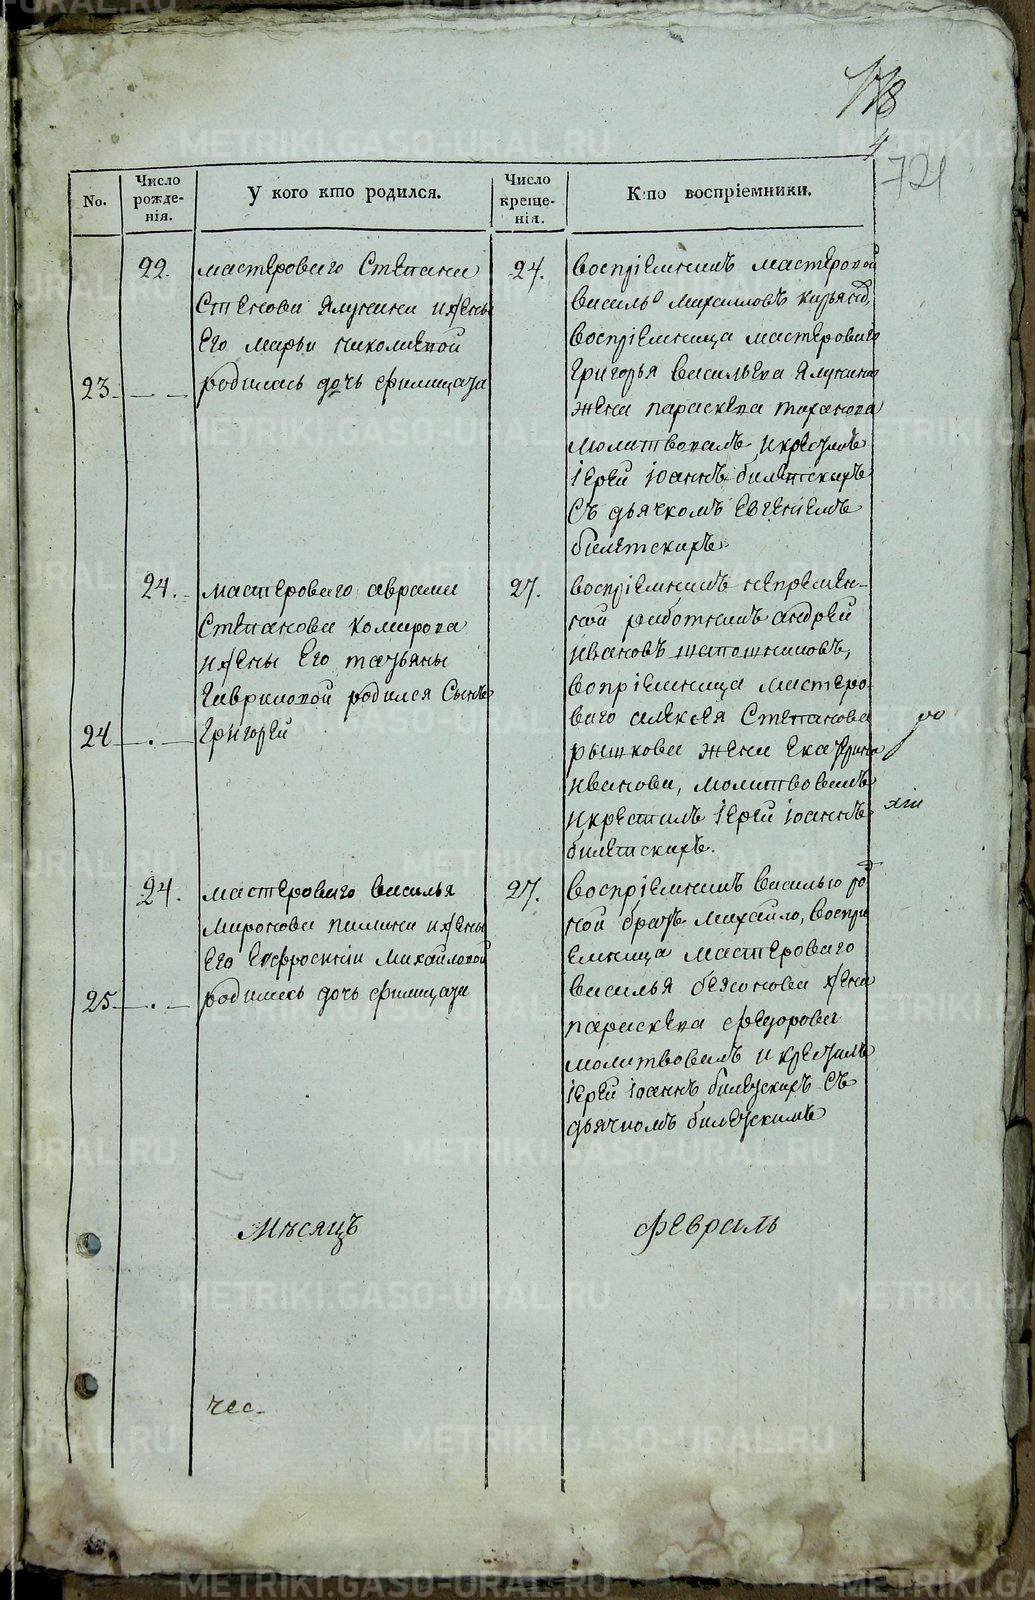 178
721
No.
Число рожденія.
У кого кто родился.
Число крещенія.
Кто воспріемники.
22.
мастероваго Степана
Степанова Ялунина и жены
Его Марьи николаевой
23
родилась дочь филицата
24.
воспріемникъ мастеровой
василь Михаиловъ
воспріемница мастероваго
григорья васильева Ялунина
жена параскева
молитвовалъ и крестилъ
іерей іоаннъ билетскиръ
Съ дьячкомъ Евгеніемъ
билетскиръ
24.
мастероваго аврама
Степанова комарова
и жены Его татьяны
Гавриловой родился Сынъ
24
григорей
27.
воспріемникъ непремен-
ной работникъ андрей
ивановъ шапошниковъ,
вопріемница мастеро-
ваго алексея Степанова
рышкова жена Екатерина
иванова, молитвовалъ
и крестилъ іерей іоаннъ
билетскиръ.
24.
мастероваго василья
миронова пилина и жены
Его Евфросиніи Михайловой
25
родилась дочь филицата
27.
воспріемникъ василью род
ной братъ михайло, воспрі
емница мастероваго
василья жена
параскева федорова
молитвовалъ и крестилъ
іерей іоаннъ билетскиръ Съ
дьячкомъ билетскимъ
Мѣсяцъ
февраль
чес
METRIKI.GASO-URAL.RU